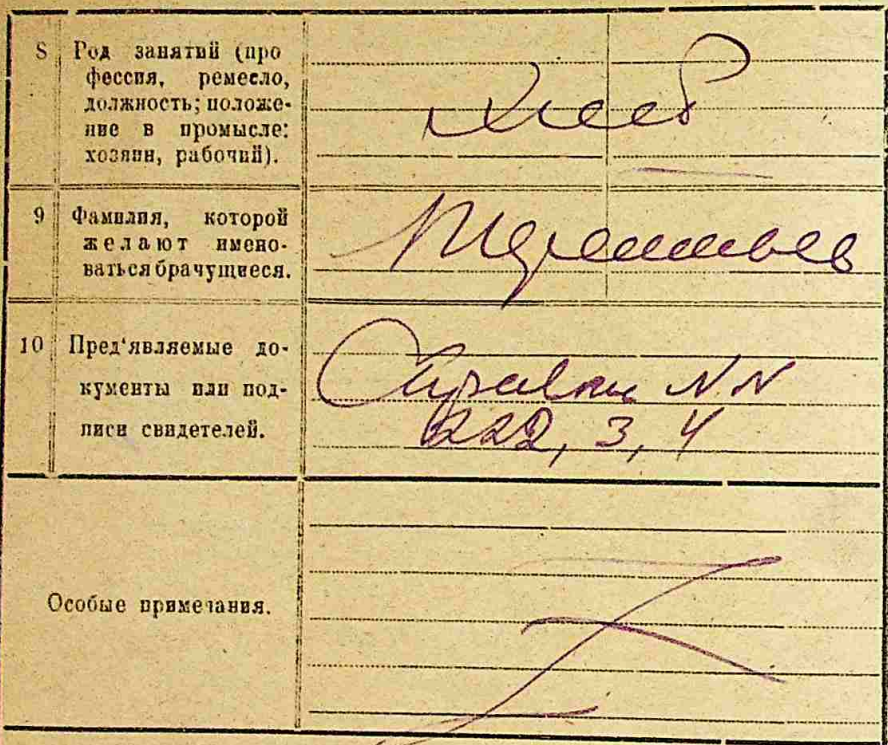 8 Род занятий (про
фессия, ремесло,
должность; положе-
ние в промысле:
хозяин, рабочий).
Хлеб
9 Фамилия, которой
желают имено-
ваться брачущиеся.
Терентьев
10 Пред'являемые до-
кументы или под-
писи свидетелей.
Справки NN
222, 3, 4
Особые примечания.